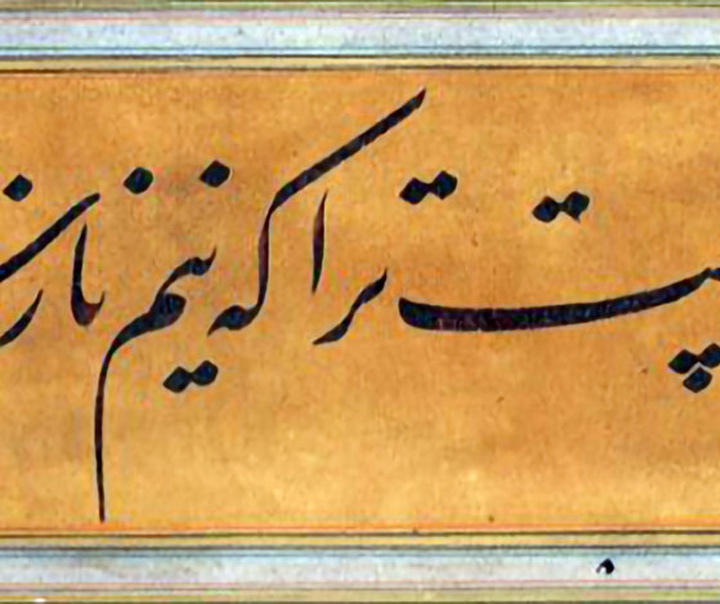 ترا که نیم ناز